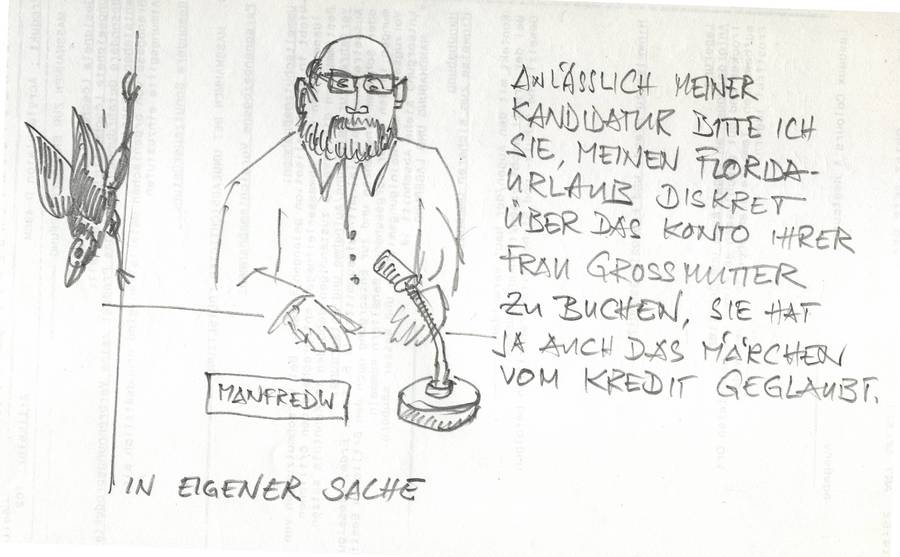 ANLÄSSLICH MEINER
KANDIDATUR BITTE ICH
SIE, MEINEN FLORIDA-
URLAUB DISKRET
ÜBER DAS KONTO IHRER
FRAU GROSSMUTTER
ZU BUCHEN, SIE HAT
JA AUCH DAS MÄRCHEN
VOM KREDIT GEGLAUBT.
MANFRED W
IN EIGENER SACHE